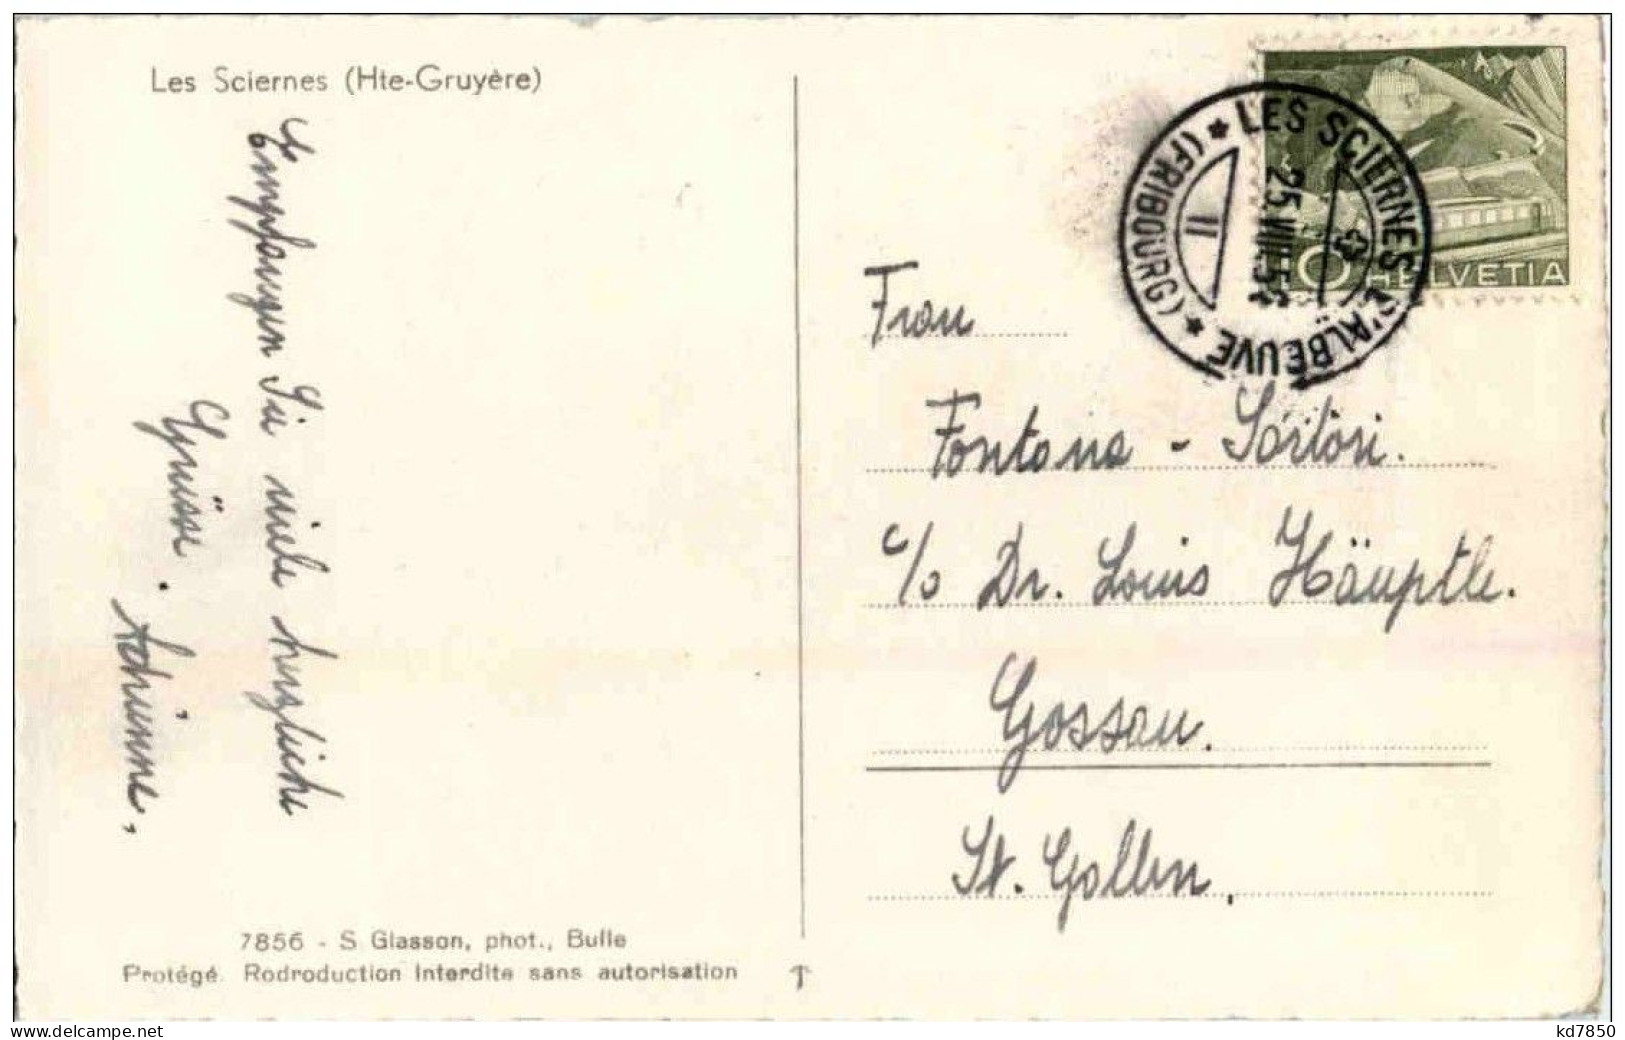 Les Sciernes (Hte-Gruyère)
Empfangen Sie viele herzliche
Grüsse.
Adrienne,
7856 - S Glasson, phot., Bulle
Protégé. Rodroduction Interdite sans autorisation
LES SCIERNES D'ALBEUVE
(FRIBOURG)
25.VIII.52
11
10 HELVETIA
Frau
Fontana - Sartori.
c/o Dr. Louis Häuptle.
Gossau.
St. Gallen,
delcampe.net
kd7850